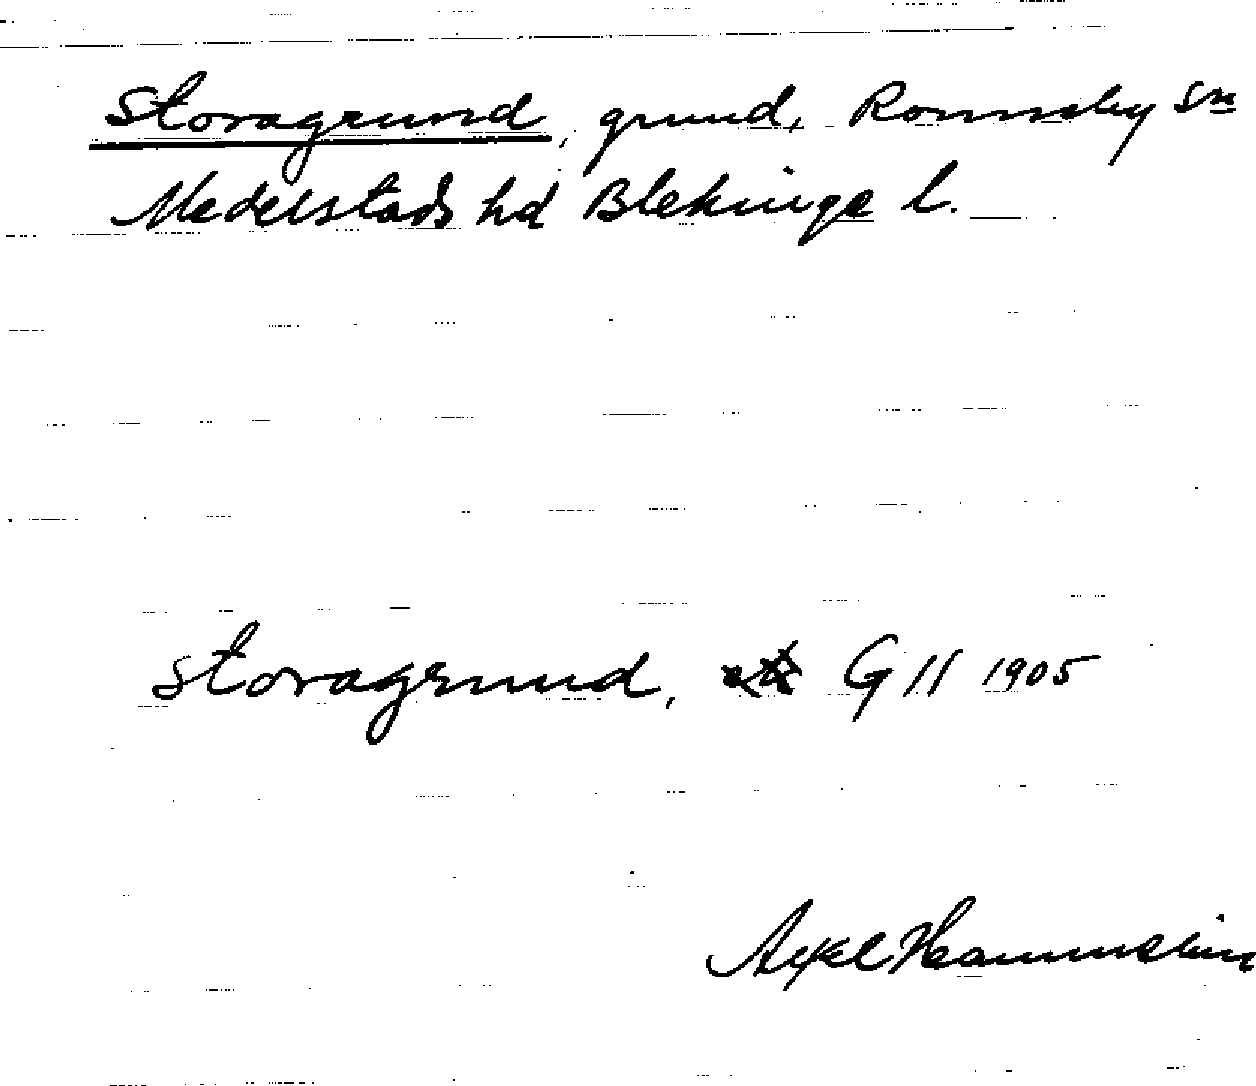 Storagrund, grund, Ronneby sn
Medelstads hd Blekinge l.
Storagrund, G II 1905
Axel